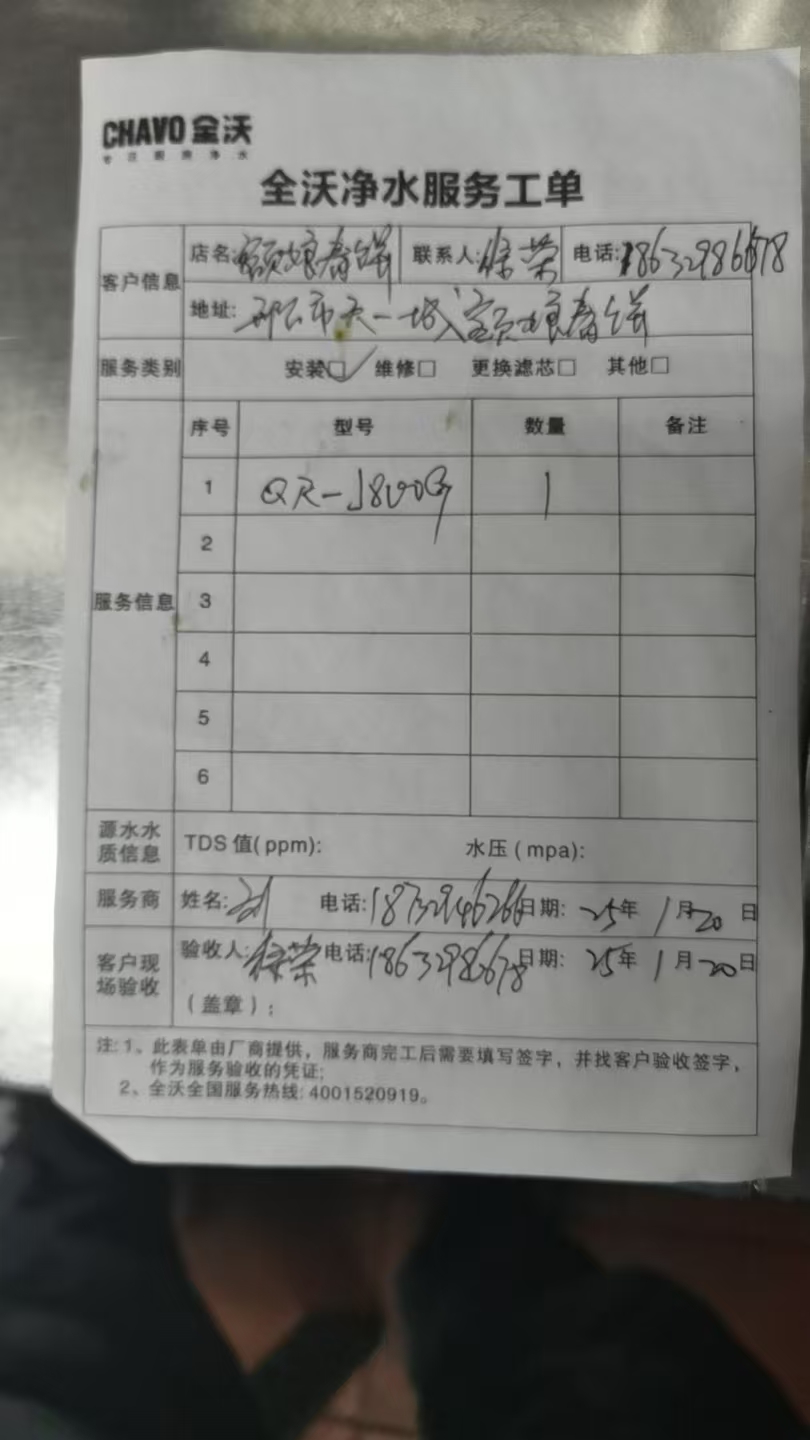 CHAVO 全沃
专注厨房净水
全沃净水服务工单
客户信息 店名:额娘春饼 联系人:徐荣 电话:18632986678
地址:邢台市天一城 额娘春饼
服务类别 安装□✓ 维修□ 更换滤芯□ 其他□
服务信息 序号 型号 数量 备注
1 QR-J800G 1
2
3
4
5
6
源水水质信息 TDS 值(ppm): 水压(mpa):
服务商 姓名:刘 电话:18732946266 日期: 25年 1月20日
客户现场验收 验收人:徐荣 电话:18632986678 日期: 25年 1月20日
(盖章):
注: 1、此表单由厂商提供，服务商完工后需要填写签字，并找客户验收签字，
作为服务验收的凭证;
2、全沃全国服务热线: 4001520919。